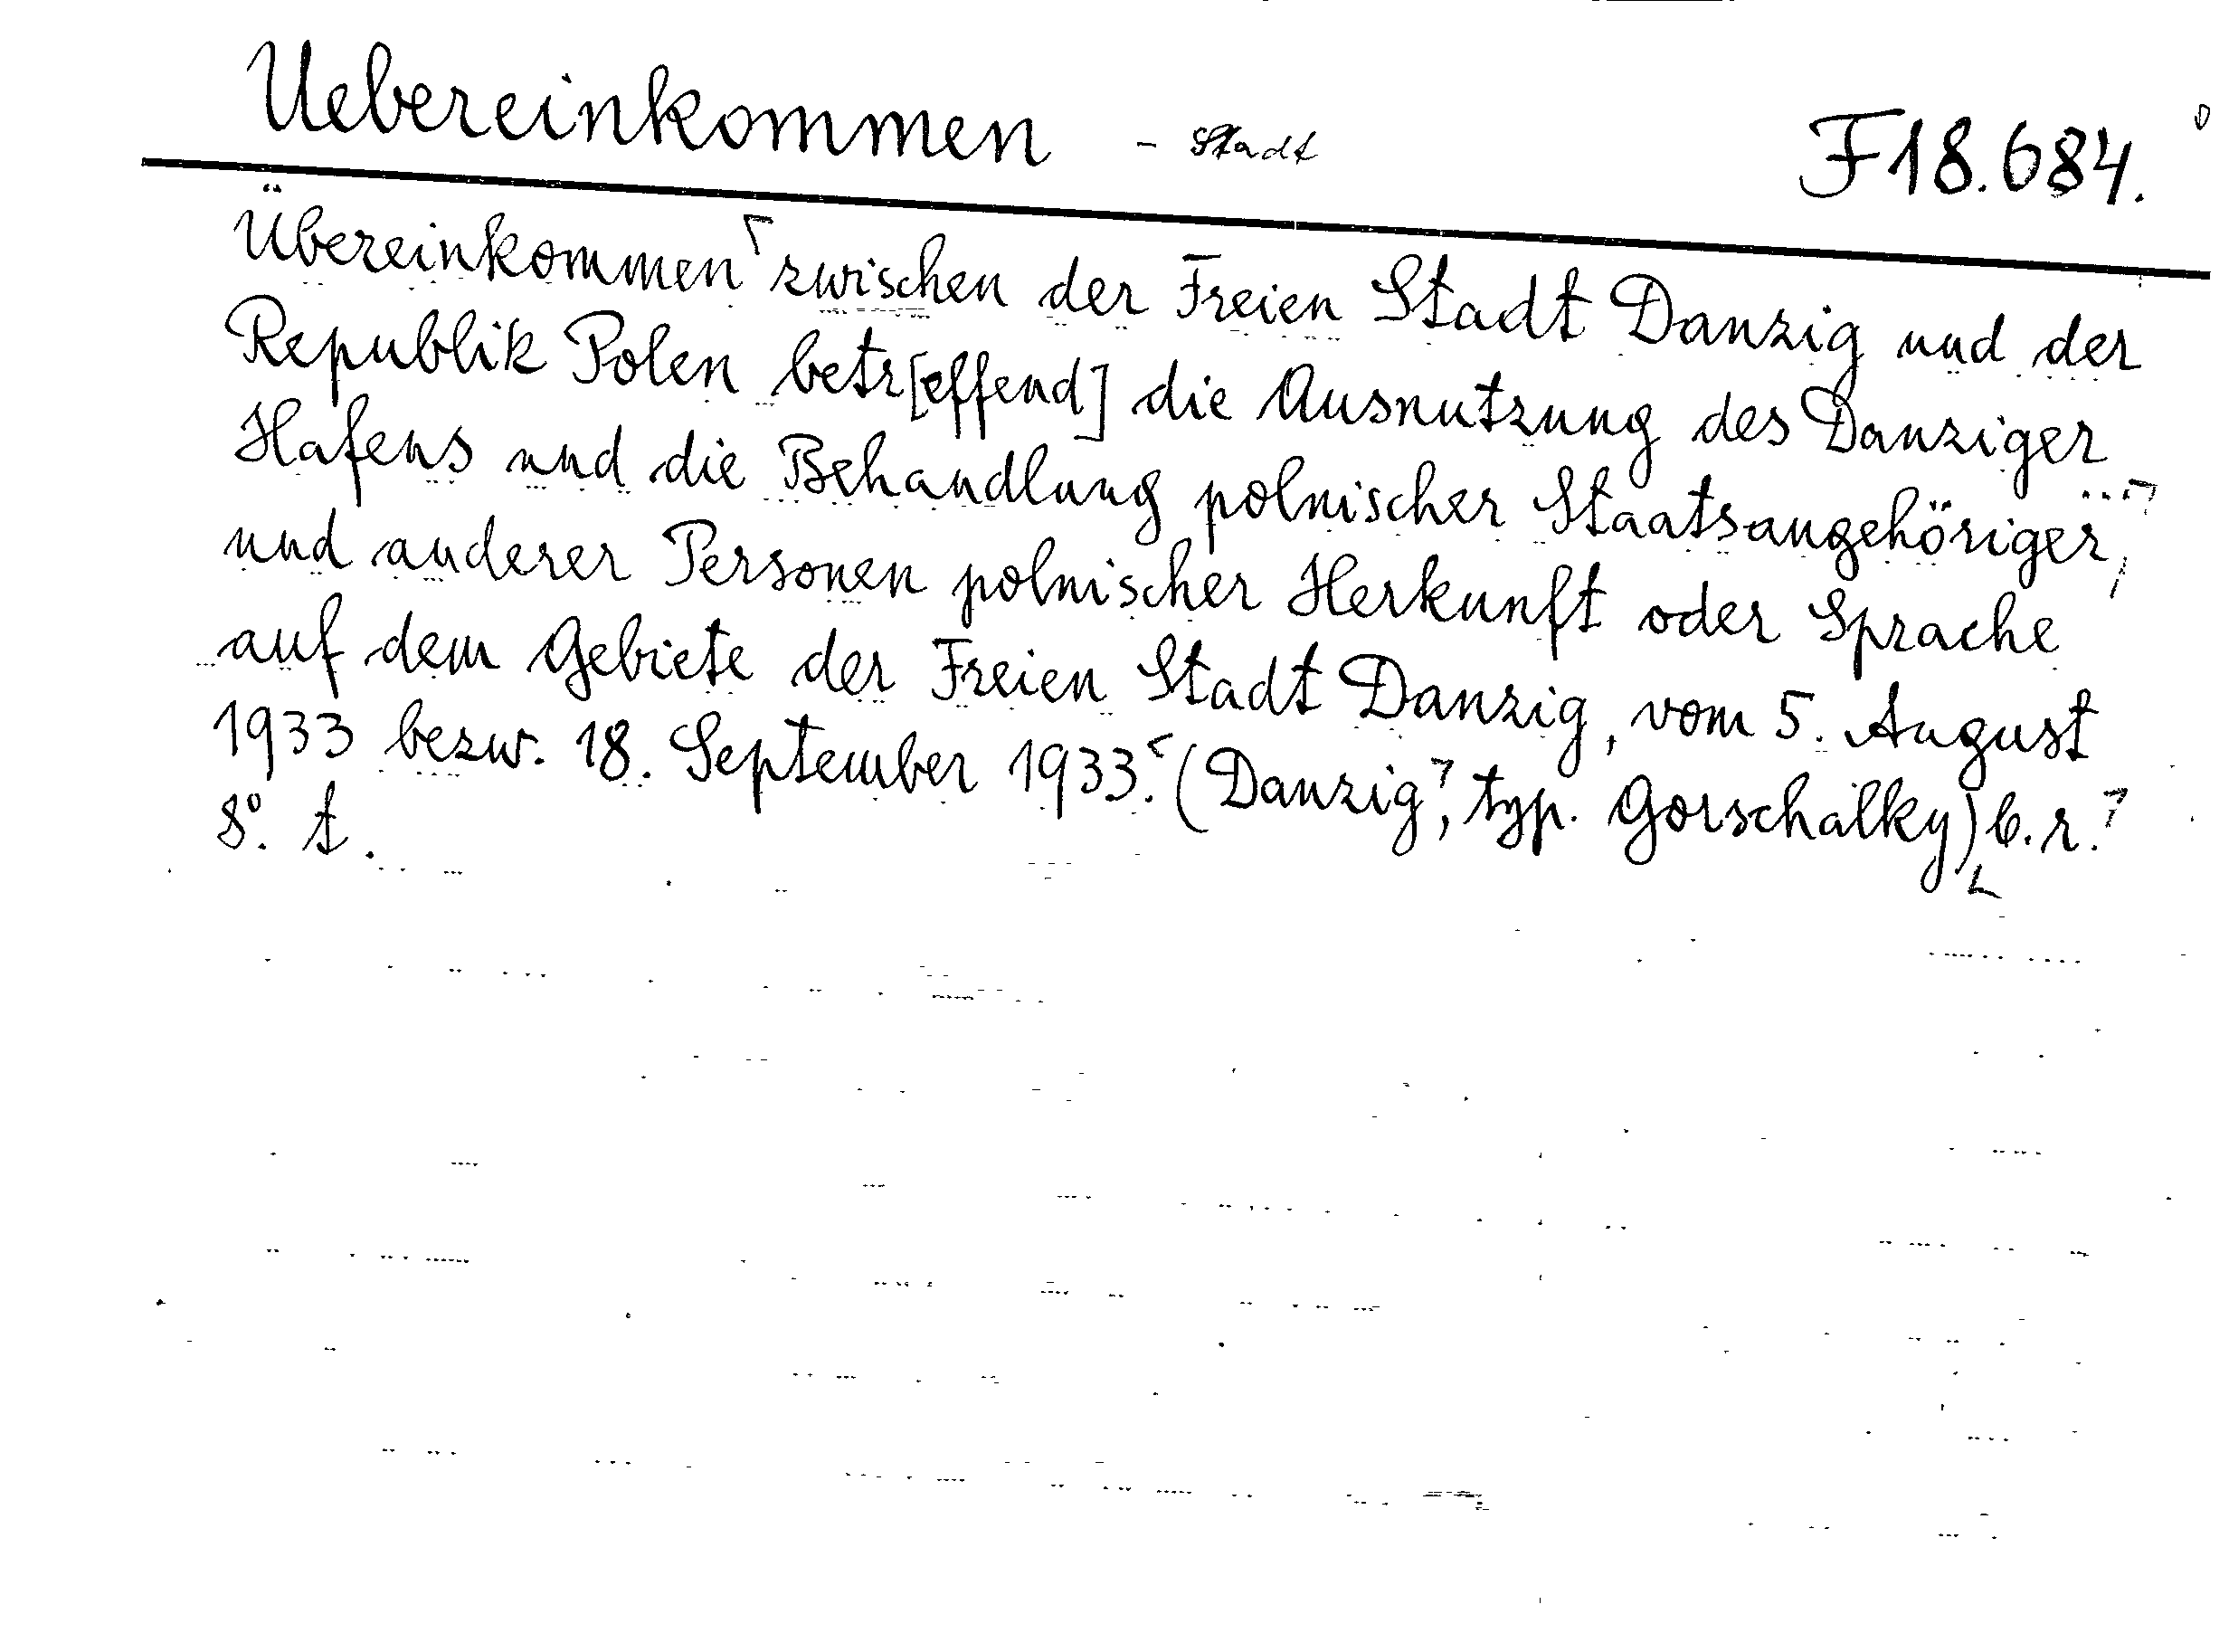 Uebereinkommen - Stadt F 18.684.
Übereinkommen zwischen der Freien Stadt Danzig und der
Republik Polen betr[effend] die Ausnutzung des Danziger
Hafens und die Behandlung polnischer Staatsangehöriger
und anderer Personen polnischer Herkunft oder Sprache
auf dem Gebiete der Freien Stadt Danzig, vom 5. August
1933 bezw. 18. September 1933. (Danzig, typ. Gorschalky) b.r.
8°. t.